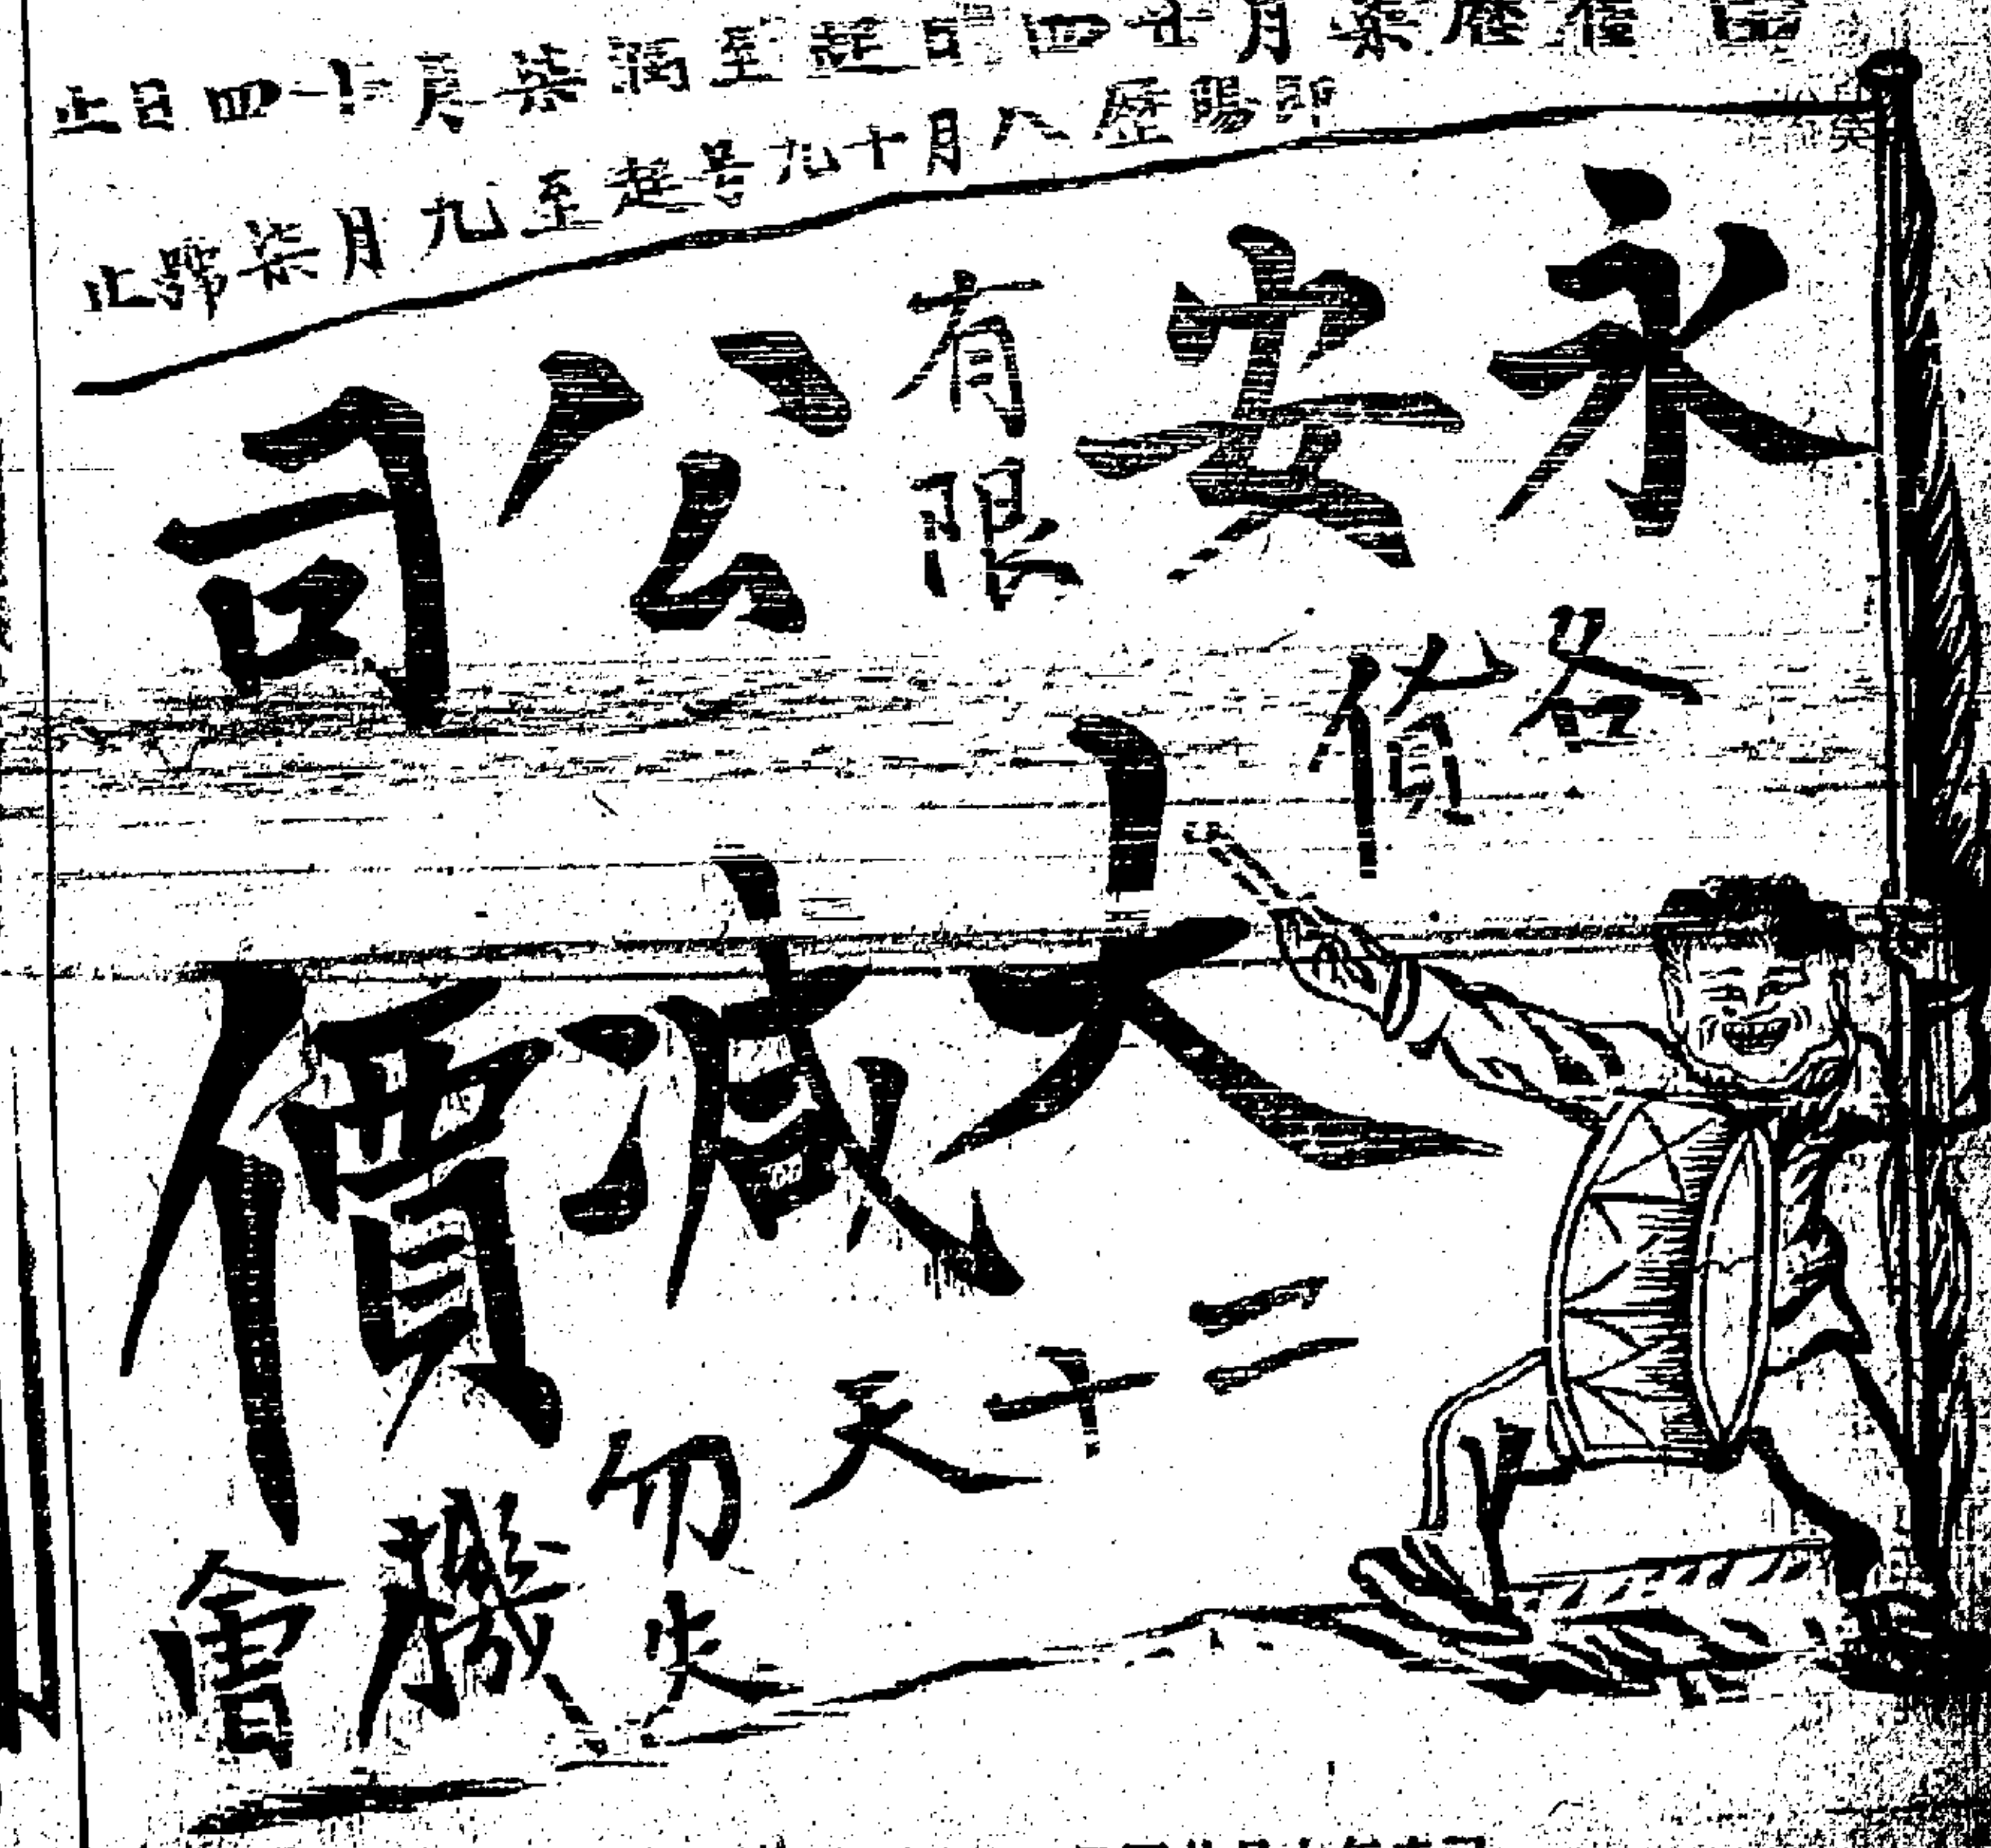 由舊歷柒月廿四日起至潤柒月十四日止
即陽歷八月十九号起至九月柒號止
永安有限公司
各貨
大减價
二十天
勿失
機會